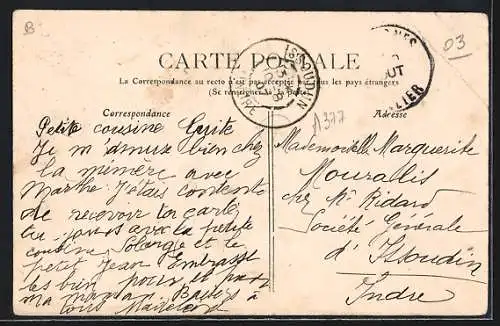 B
03
CARTE POSTALE
La Correspondance au recto n'est pas acceptée par tous les pays étrangers
(Se renseigner à la poste)
ISSOUDUN
INDRE
AOUT
ALLIER
A377
Correspondance
Adresse
Petite cousine
Je m'amuse bien chez
la mémère avec
Marthe J'étais contente
de recevoir ta carte
tu joues avec la petite
cousine Solange et le
petit Jean Embrasse
les bien pour et par
ma maman Baisers à
tous Madeleine
Mademoiselle Marguerite
chez Mr Ridard
Société Générale
d'Issoudun
Indre